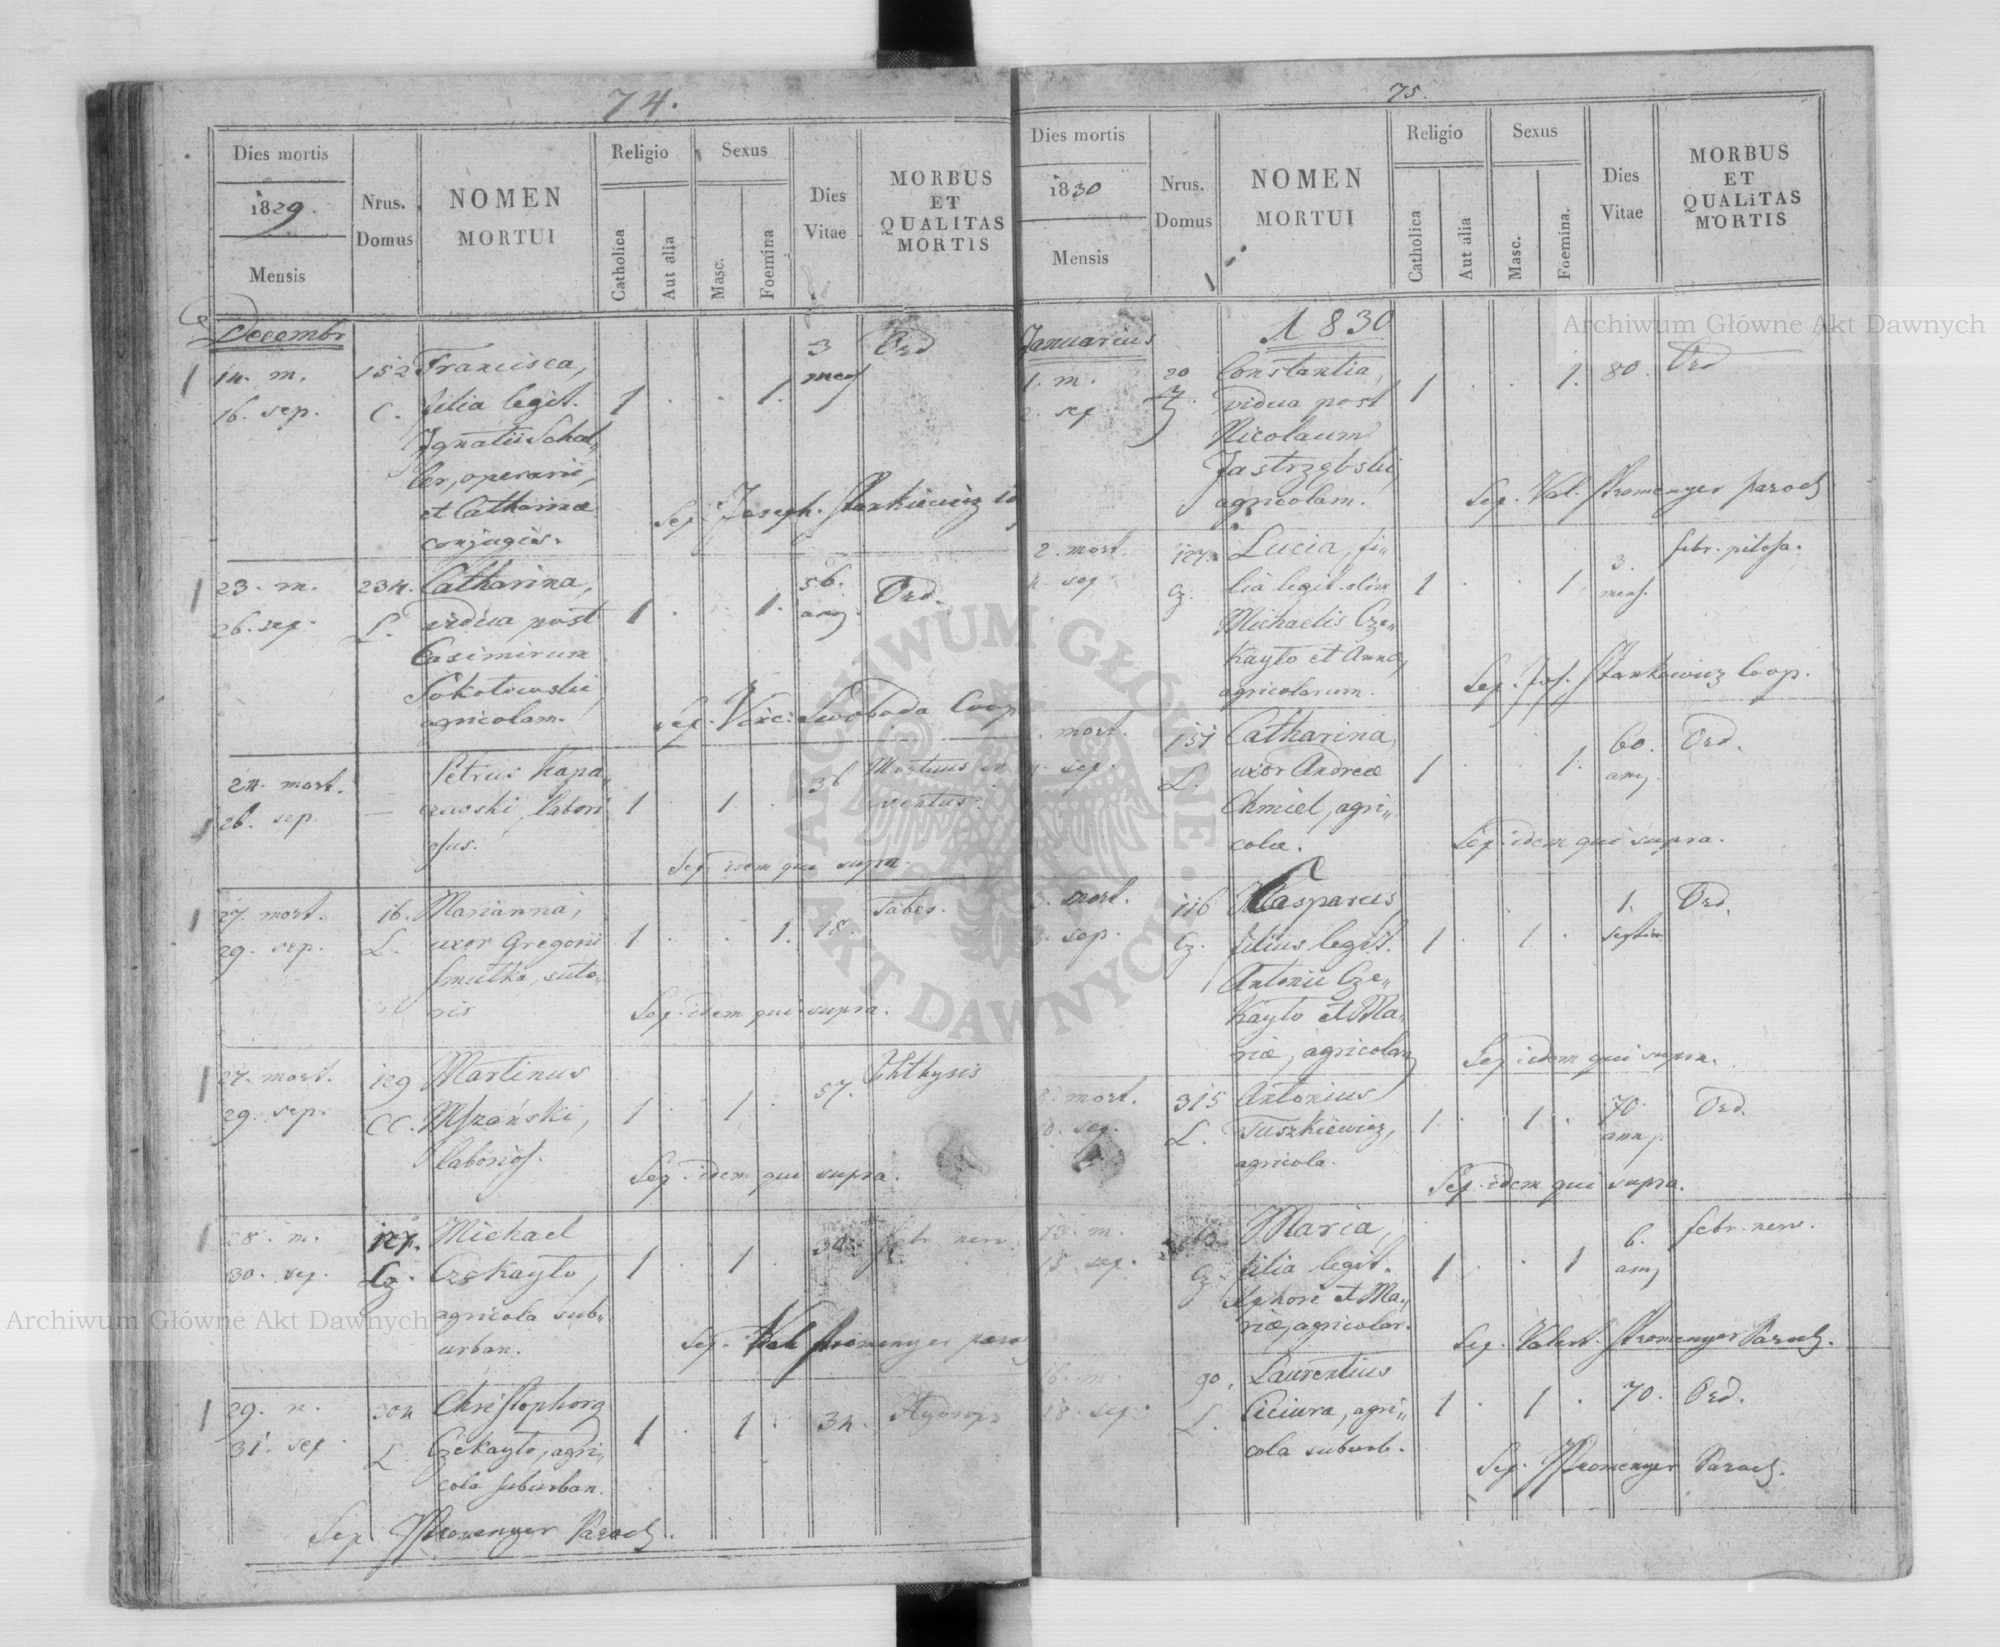 74.
Dies mortis
1829.
Mensis
Nrus.
Domus
NOMEN
MORTUI
Religio
Catholica
Aut alia
Sexus
Masc.
Foemina
Dies
Vitae
MORBUS
ET
QUALITAS
MORTIS
Decembr
14. m. 152 Francisca, 3 Ord
16. sep. C. filia legit. 1 . . 1. men
Ignatii Schal„
ler, operarii,
et Catharinae
conjugis.
Sep. Joseph. Stankiewicz
23. m. 234. Catharina, 56. Ord.
26. sep. L. vidua post 1 . . 1. ann.
Casimirum
Sokołowski,
agricolam.
Sep. Vinc: Swoboda Coop
24. mort. Petrus Kapa„ 36 Mortuus in„
26. sep. — rowski, labori 1 . 1 . ventus.
osus.
Sep. idem qui supra.
27. mort. 16. Marianna, Tabes.
29. sep. L. uxor Gregorii 1 . . 1. 18.
Smutka, suto„
ris
Sep. idem qui supra.
27. mort. 129 Martinus 57. Phthysis
29. sep. CC. Mszański, 1 . 1 .
laborios.
Sep. idem qui supra.
28. m. 127. Michael febr. nerv.
30. sep. Cz. Czekayło, 1 . 1 .
agricola sub„
urban.
Sep. Val. Stromenger paroc
29. m. 304 Christophorg Hydrops
31. sep L. Czekayło, agri„ 1 . 1 . 34.
cola suburban.
Sep. Stromenger Paroch.
75.
Dies mortis
1830
Mensis
Nrus.
Domus
NOMEN
MORTUI
Religio
Catholica
Aut alia
Sexus
Masc.
Foemina.
Dies
Vitae
MORBUS
ET
QUALITAS
MORTIS
Januarius 1830
1. m. 20 Constantia, 1 . . 1. 80. Ord
2. sep vidua post
Nicolaum
Jastrzębski,
agricolam.
Sep. Val. Stromenger Paroch
2. mort. 127. Lucia, fi„ 3. febr. pitosa.
4. sep Cz. lia legit. olim 1 . . 1 mens.
Michaelis Cze„
kayło et Annæ,
agricolarum.
Sep. Jos. Stankiewicz Coop.
mort. 151 Catharina, 60. Ord.
sep. L. uxor Andreæ 1 . . 1. ann.
Chmiel, agri„
colæ.
Sep. idem qui supra.
mort. 116 Casparus, 1. Ord.
sep. Cz. filius legit. 1 . 1 . septim
Antonii Cze„
kayło et Ma„
riæ, agricolar
Sep idem qui supra.
mort. 315 Antonius 70. Ord.
sep. L. Tuszkiewicz, 1 . 1 . ann.
agricola.
Sep. idem qui supra.
13. m. Maria, 6. febr. nerv.
15 sep. Cz. filia legit. 1 . . 1 ann
et Ma„
riæ, agricolar.
Sep. Valent. Stromenger Paroch.
16. m. 90. Laurentius 70. Ord.
18. sep. L. Cieiura, agri„ 1 . 1 .
cola suburb.
Sep. Stromenger Paroch.
Archiwum Główne Akt Dawnych
Archiwum Główne Akt Dawnych
ARCHIWUM GŁÓWNE AKT DAWNYCH